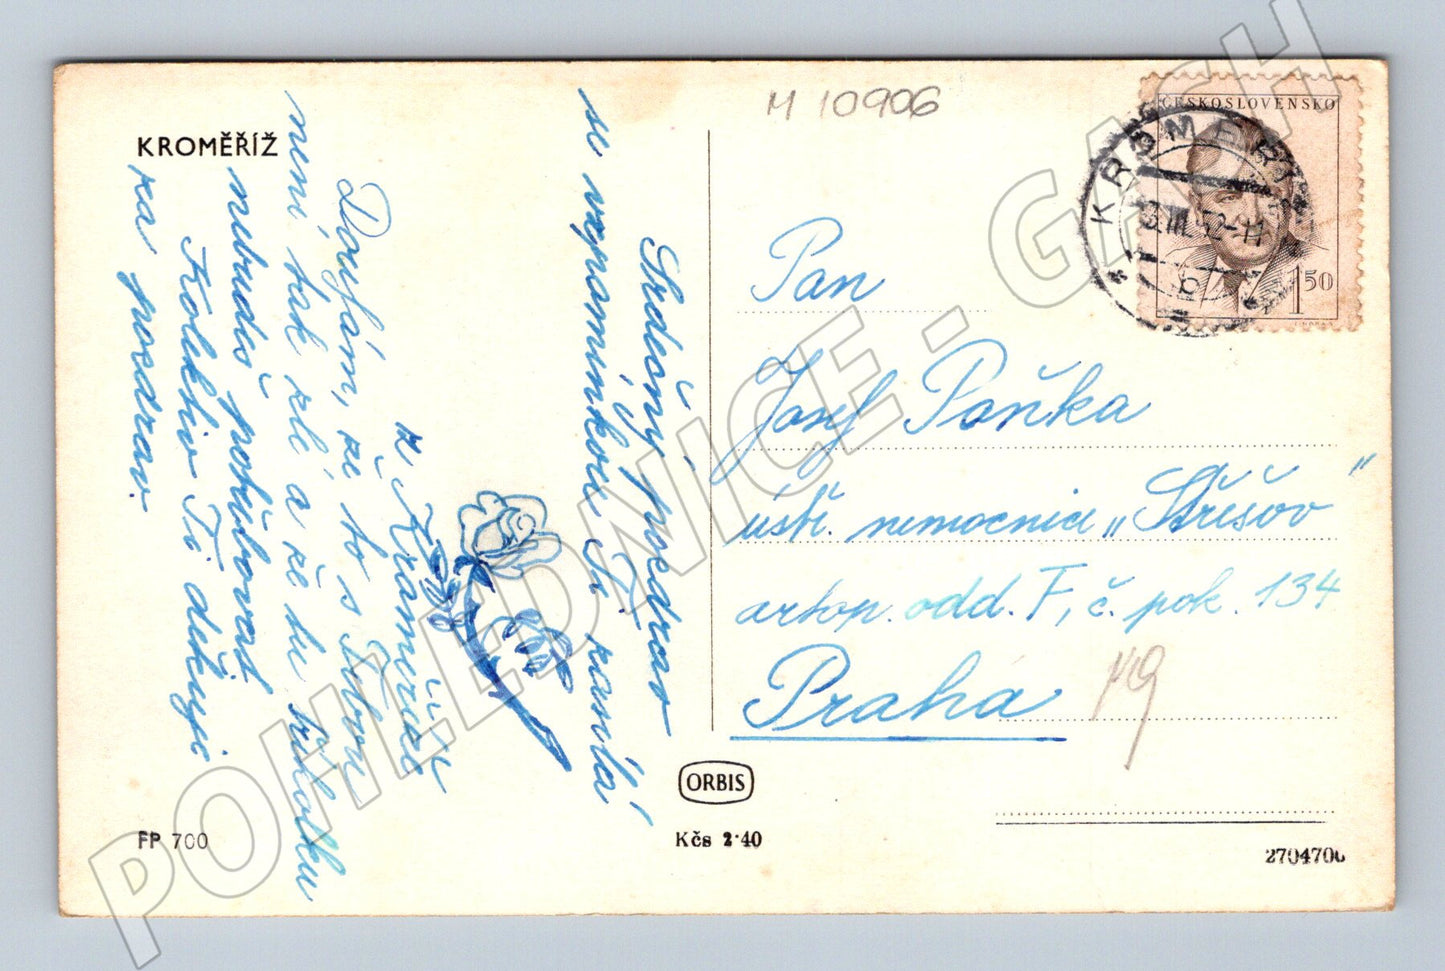 KROMĚŘÍŽ
M 10906
ČESKOSLOVENSKO
1 50
KROMĚŘÍŽ
3.III.52-11
b
Srdečný pozdrav
se vzpomínkou Ti zasílá
z Kroměříže
Doufám, že to s Tebou
není tak zlé a že tu
nebudeš potřebovat
Kolektiv Ti děkuje
za pozdrav.
Pan
Josef Paňka
ústř. nemocnice „Střešov"
ortop. odd. F, č. pok. 134
Praha
19
ORBIS
FP 700
Kčs 2·40
2704700
POHLEDNICE - GASH